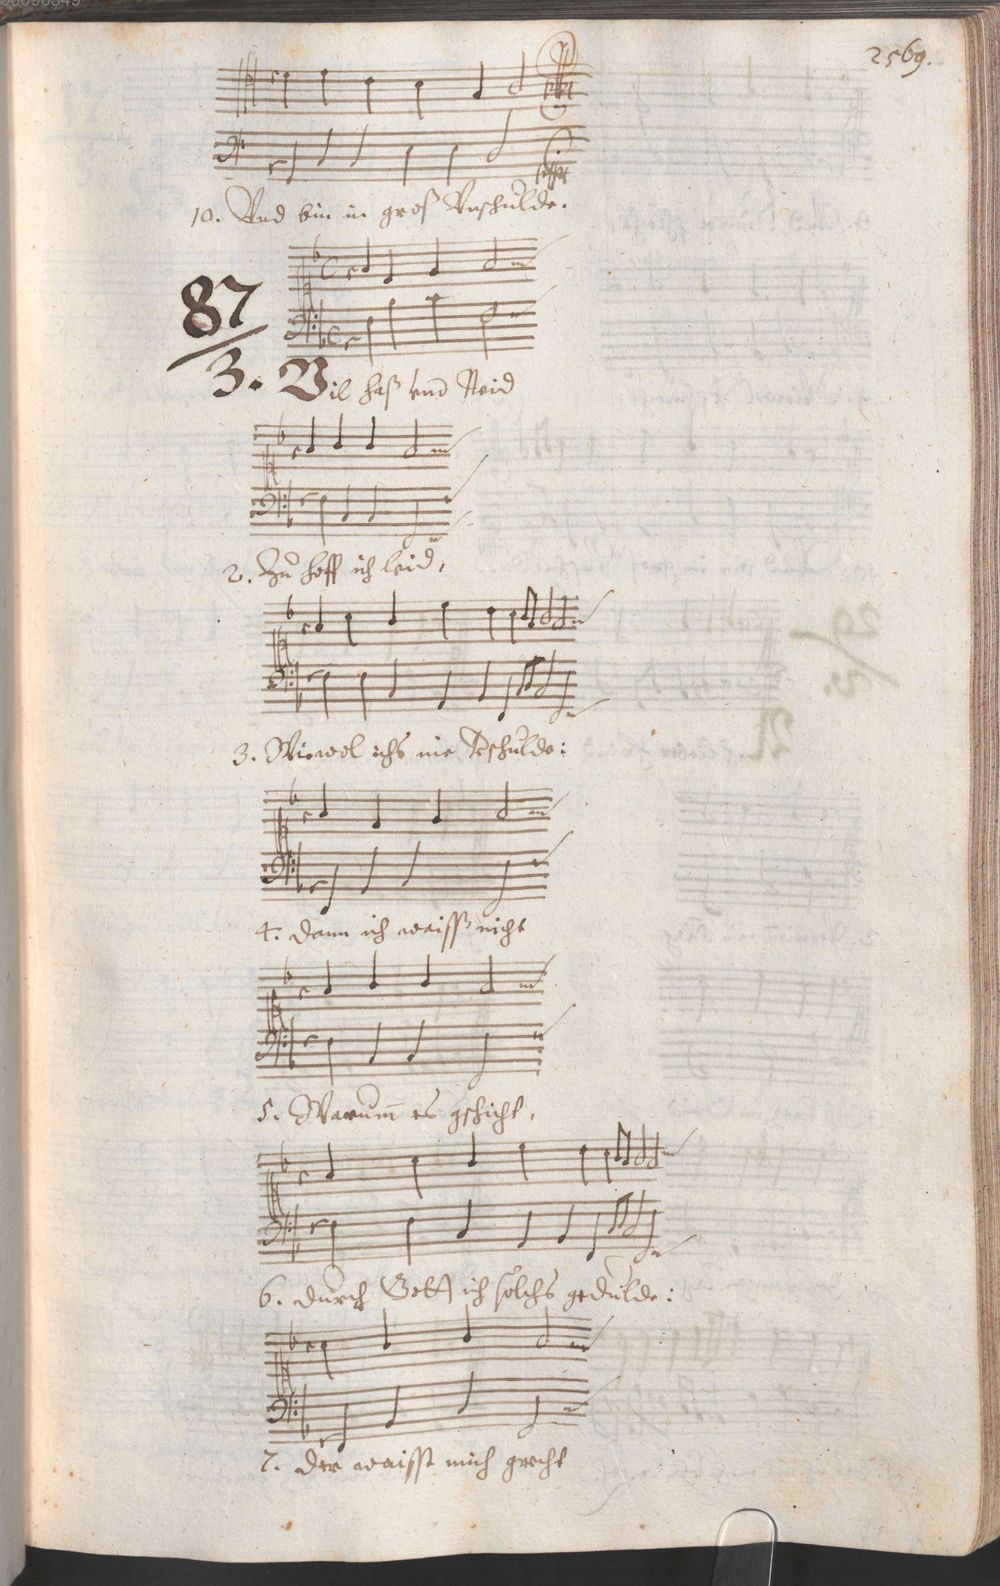 2569.
10. Vnd bin in groß Vnschulde.
87
3. Vil haß vnd Neid
2. Zu hoff ich leid,
3. Wiewol ichs nie verschulde:
4. dann ich waiß nicht
5. Warum̄ es gschicht,
6. durch Gott ich solchs gedulde:
7. der waißt mich grecht